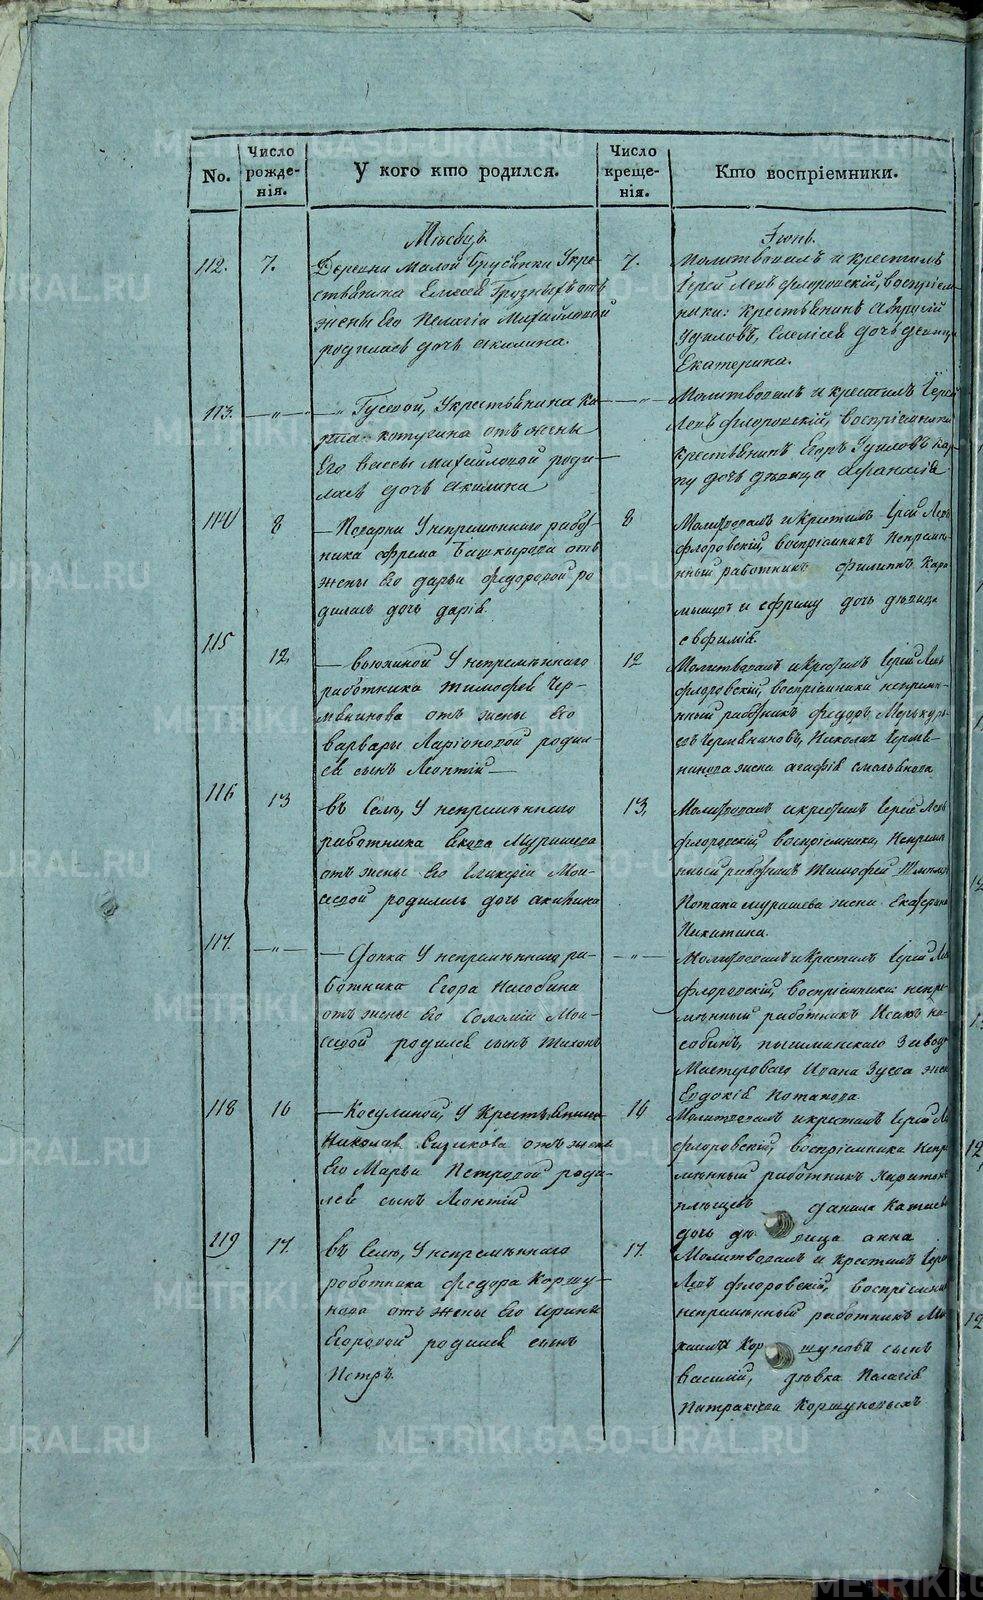 No.
Число рожденія.
У кого кто родился.
Число крещенія.
Кто воспріемники.
Мѣсяцъ
Іюнь.
112. 7.
Деревни Малой Брусянки Укре-
стьянина Елисея Грузныхъ отъ
жены Его Пелагіи Михайловой
родилась дочь Акилина.
7.
Молитвовалъ и крестилъ
Іерей Левъ Флоровскій, воспріем-
ники: крестьянинъ
дочь девица
Екатерина.
113. —"—
—"Гусевой, Укрестьянина Ка-
рпа отъ жены
Его Вассы Михайловой роди-
лась дочь Акилина
—"—
Молитвовалъ и крестилъ Іерей
Левъ Флоровскій, воспріемники
крестьянинъ Егоръ Кар-
пу дочь дѣвица Афанасія
114 8
— У непремѣннаго рабо-
тника Ефрема Башкырова отъ
жены Его Дарьи Федоровой ро
дилась дочь Дарія.
8
Молитвовалъ и Крестилъ Іерей Левъ
Флоровскій, воспріемникъ Непремѣ-
нный работникъ Филиппъ Кара
мышевъ и Ефрему дочь дѣвица
Евфимія.
115 12,
— Вьюхиной У непремѣннаго
работника Тимофея Чер-
мянинова отъ жены Его
Варвары Ларіоновой родил-
ся сынъ Леонтій —
12
Молитвовалъ и Крестилъ Іерей Левъ
Флоровскій, воспріемники непремѣ-
нный работникъ Федоръ Меркурь-
евъ Чермяниновъ, Николая Чермя-
нинова жена Агафія Емельянова
116 13
въ Селѣ, У непремѣннаго
работника Мурашева
отъ жены Его Гликеріи Мои-
сеевой родилась дочь Акилина
13,
Молитвовалъ и крестилъ Іерей Левъ
Флоровскій, воспріемники, Непремѣ-
нный работникъ Тимофей
Потапа Мурашева жена Екатерина
Никитина.
117. —"—
— У непремѣннаго ра-
ботника Егора Насобина
отъ жены Его Соломіи Мои-
сеевой родился сынъ Тихонъ
—"—
Молитвовалъ и Крестилъ Іерей Левъ
Флоровскій, воспріемники: непре-
мѣнный работникъ Исакъ На-
собинъ, пышминскаго Завода
Мастероваго Ивана Зуева жена
Евдокія Потапова
118 16
— Косулиной, У Крестьянина
Николая отъ жены
Его Марьи Петровой роди-
лся сынъ Леонтій
16
Молитвовалъ и крестилъ Іерей Левъ
Флоровскій, воспріемники Непре
мѣнный работникъ Харитонъ
Данила
дочь дѣвица Анна
119 17.
въ Селѣ, У непремѣннаго
работника Федора Коршу-
нова отъ жены Его Ирины
Егоровой родился сынъ
Петръ.
17.
Молитвовалъ и Крестилъ Іерей
Левъ Флоровскій, воспріемники
непремѣнный работникъ Ми-
хаилъ Коршуновъ сынъ
Василій, дѣвка Пелагія
Коршуновыхъ
METRIKI.GASO-URAL.RU